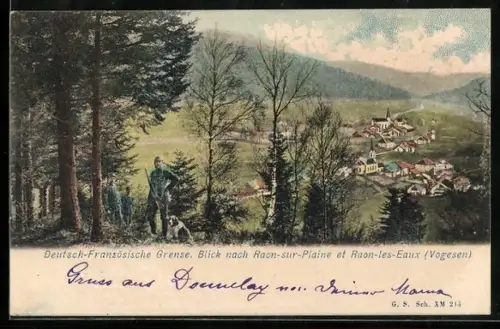 Deutsch-Französische Grenze. Blick nach Raon-sur-Plaine et Raon-les-Eaux (Vogesen)
Gruss aus Donnelay von Deiner Mama
G. S. Sch. XM 215